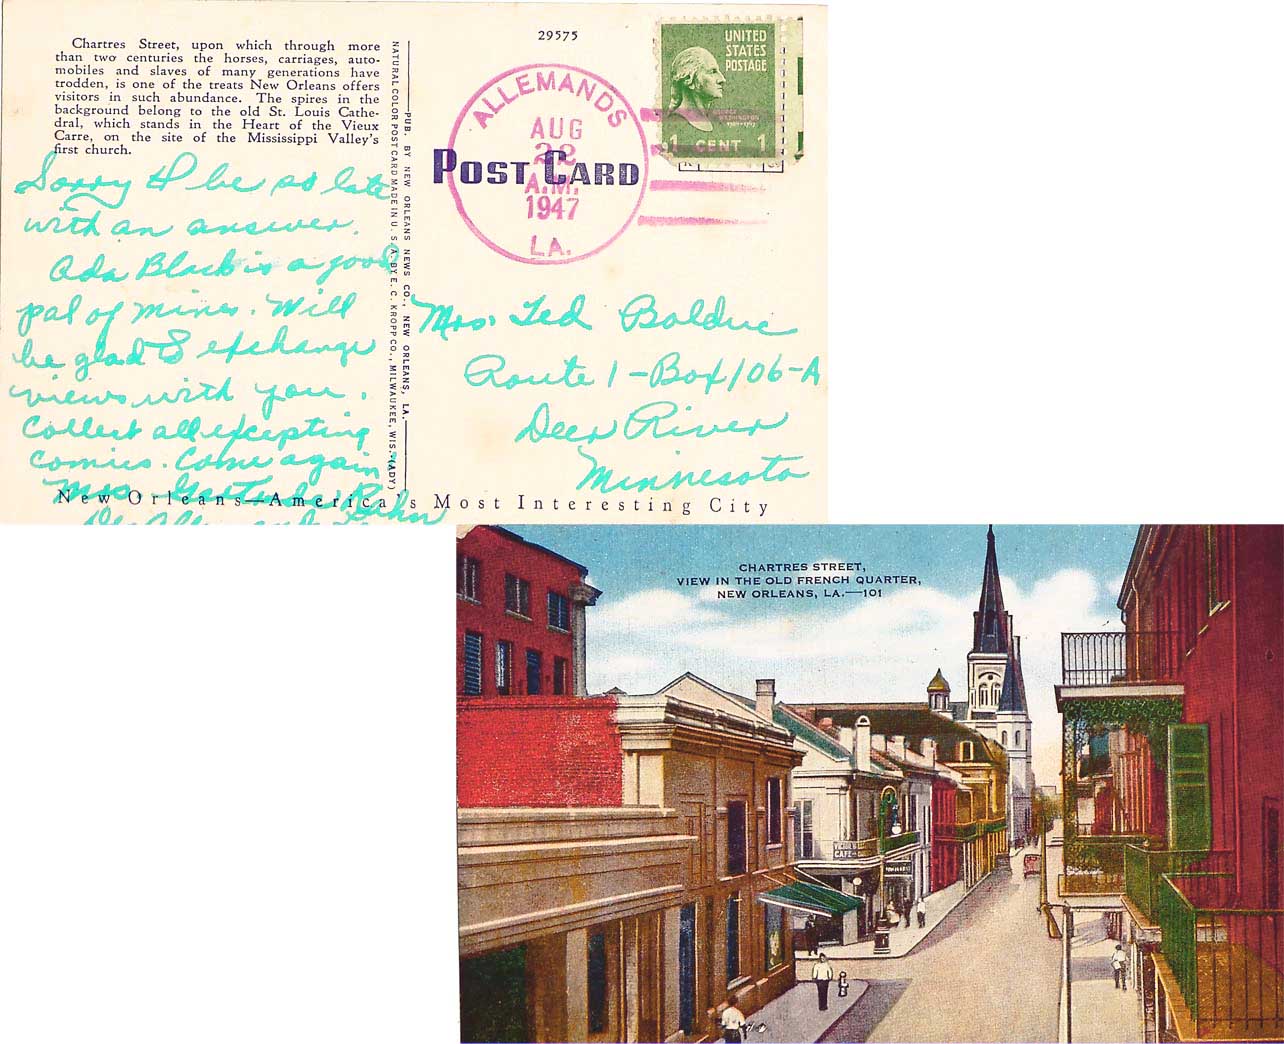 Chartres Street, upon which through more
than two centuries the horses, carriages, auto-
mobiles and slaves of many generations have
trodden, is one of the treats New Orleans offers
visitors in such abundance. The spires in the
background belong to the old St. Louis Cathe-
dral, which stands in the Heart of the Vieux
Carre, on the site of the Mississippi Valley's
first church.
Sorry to be so late
with an answer.
Ada Black is a good
pal of mine. Will
be glad to exchange
views with you.
Collect all excepting
comics. Come again
Mrs. Gertrude Rahn
PUB. BY NEW ORLEANS NEWS CO., NEW ORLEANS, LA.
NATURAL COLOR POST CARD MADE IN U. S. A. BY E. C. KROPP CO., MILWAUKEE, WIS. (ADY)
29575
POST CARD
ALLEMANDS
AUG
22
A.M.
1947
LA.
UNITED
STATES
POSTAGE
1 CENT 1
Mrs. Ted Bolduc
Route 1-Box 106-A
Deer River
Minnesota
New Orleans—America's Most Interesting City
CHARTRES STREET,
VIEW IN THE OLD FRENCH QUARTER,
NEW ORLEANS, LA.—101
CAFE